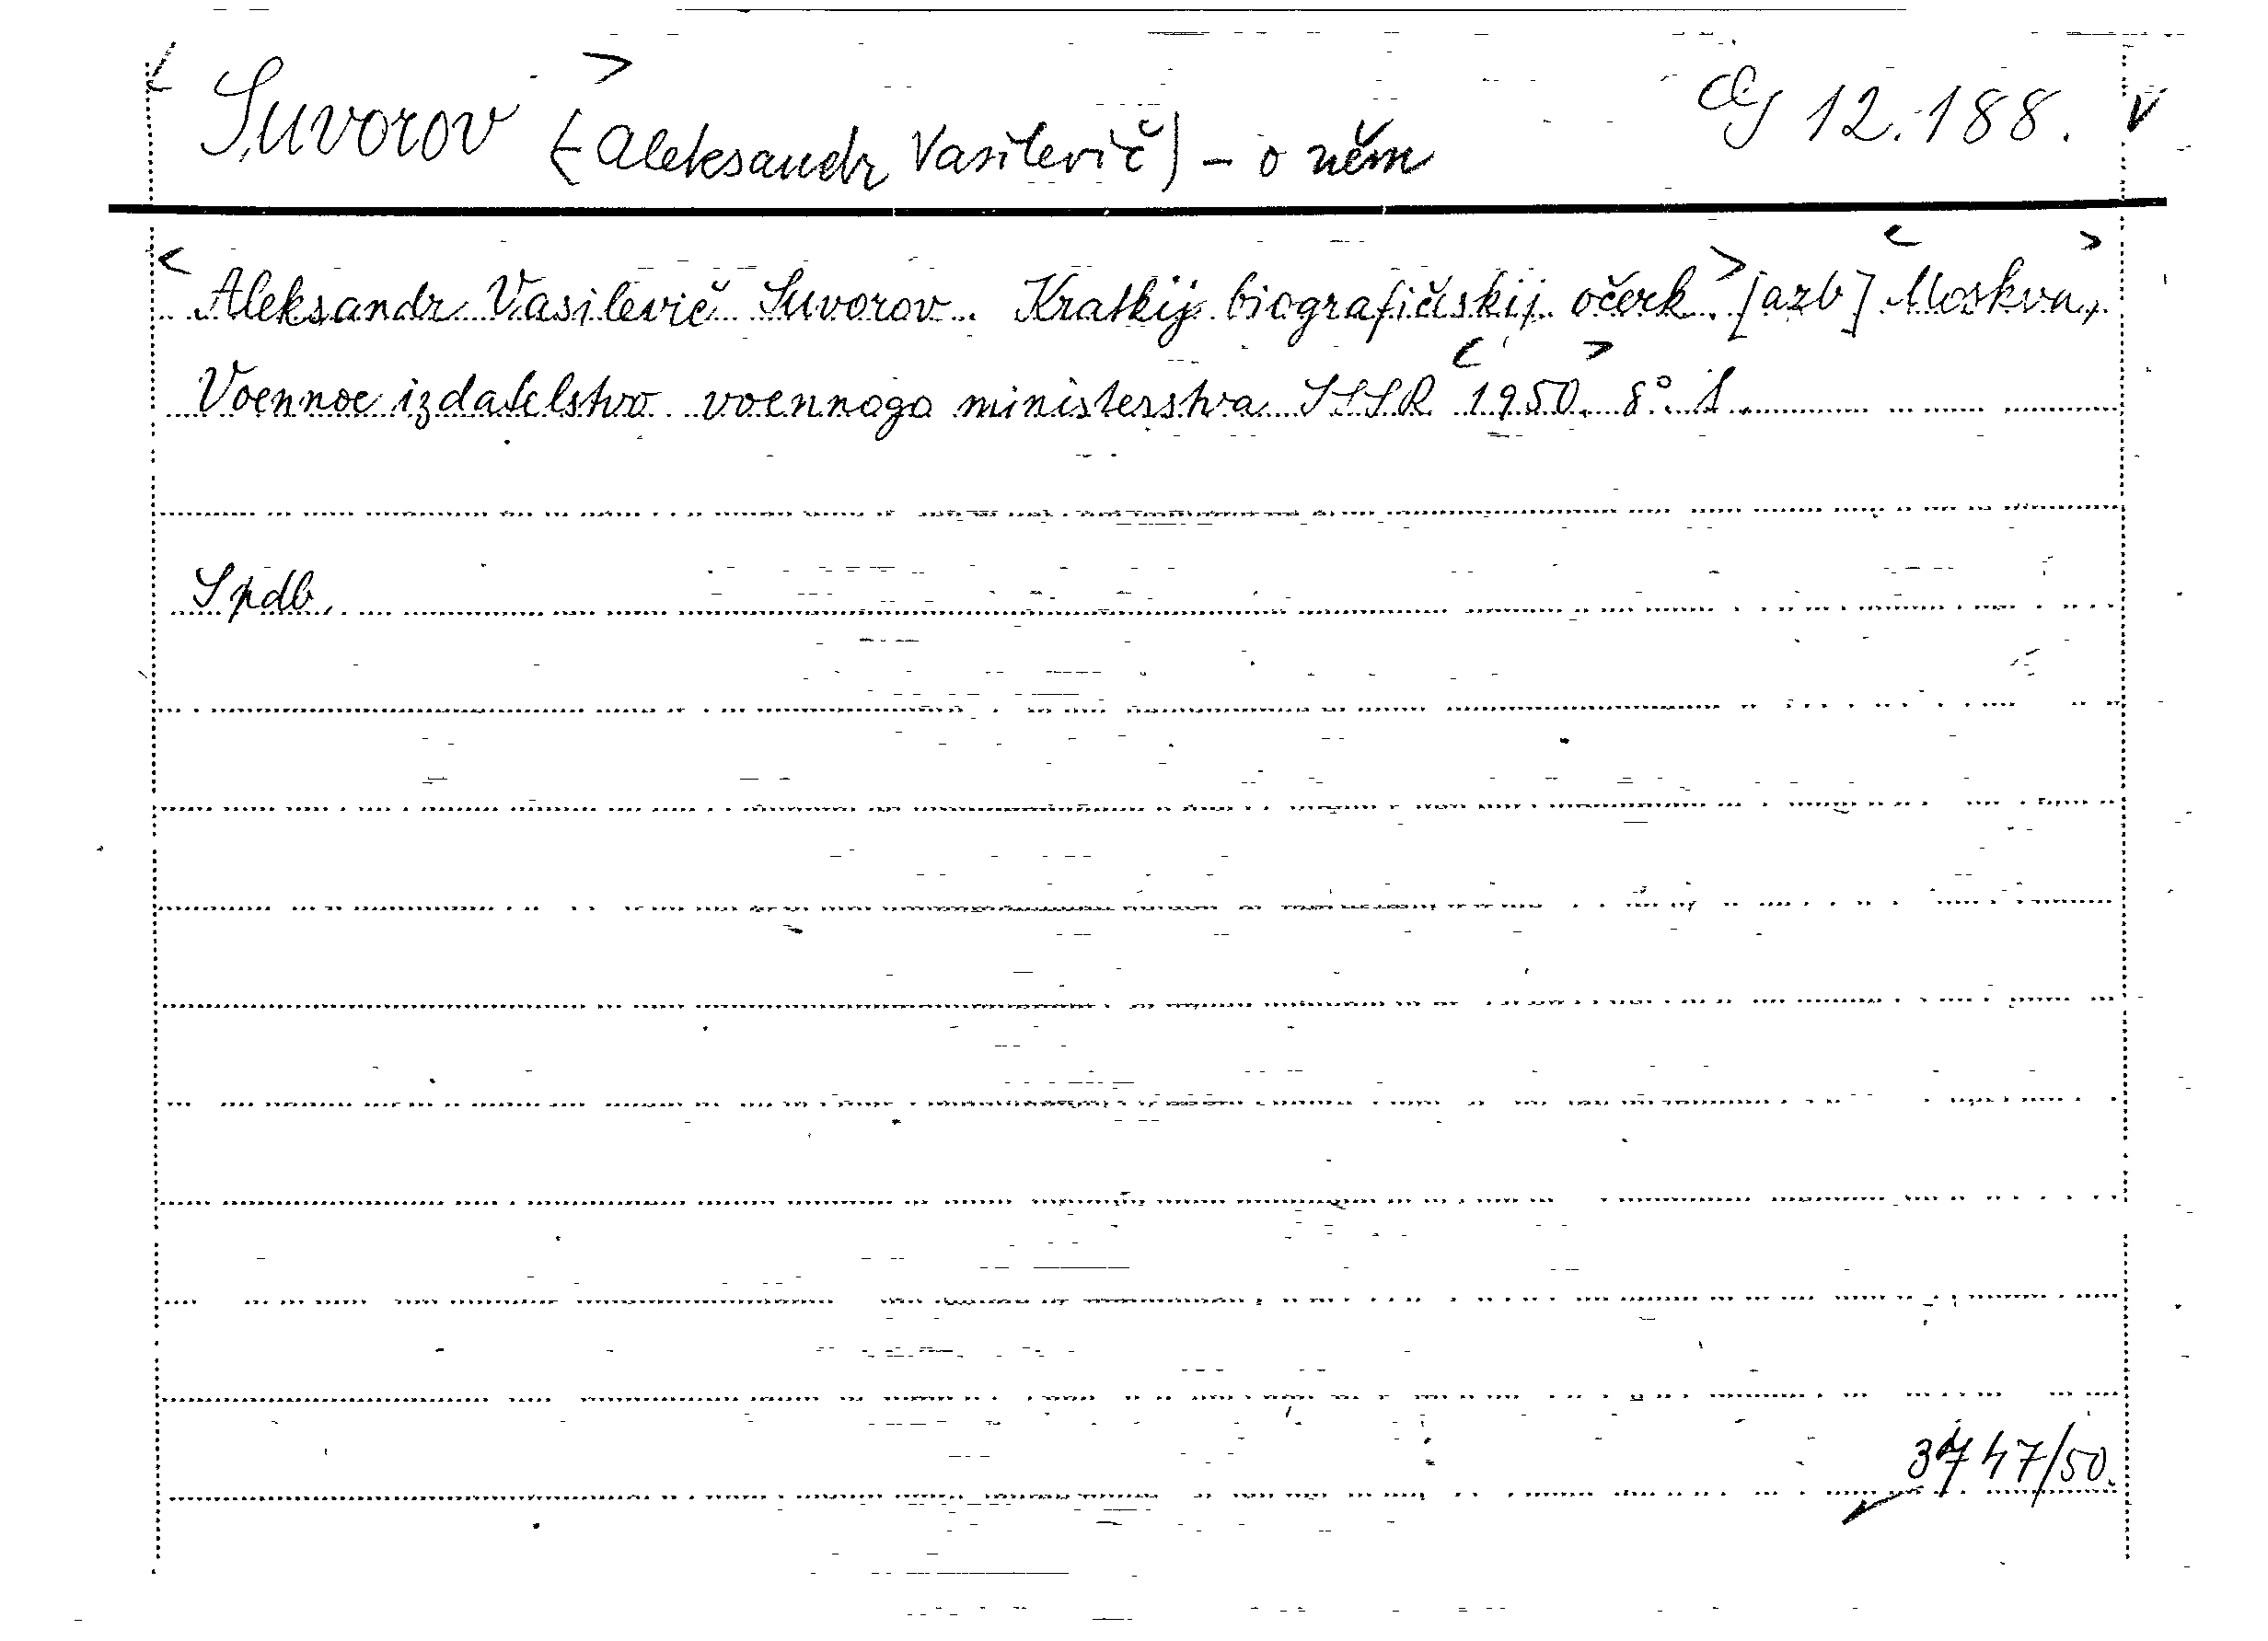 < Suvorov > (Aleksandr Vasilevič) - o něm Cg 12.188. v
< Aleksandr Vasilevič Suvorov. Kratkij biografičeskij očerk. > [azb] < Moskva, >
Voennoe izdatelstvo voennogo ministerstva SSSR < 1950. > 8°. 1.
Spdb.
3747/50.